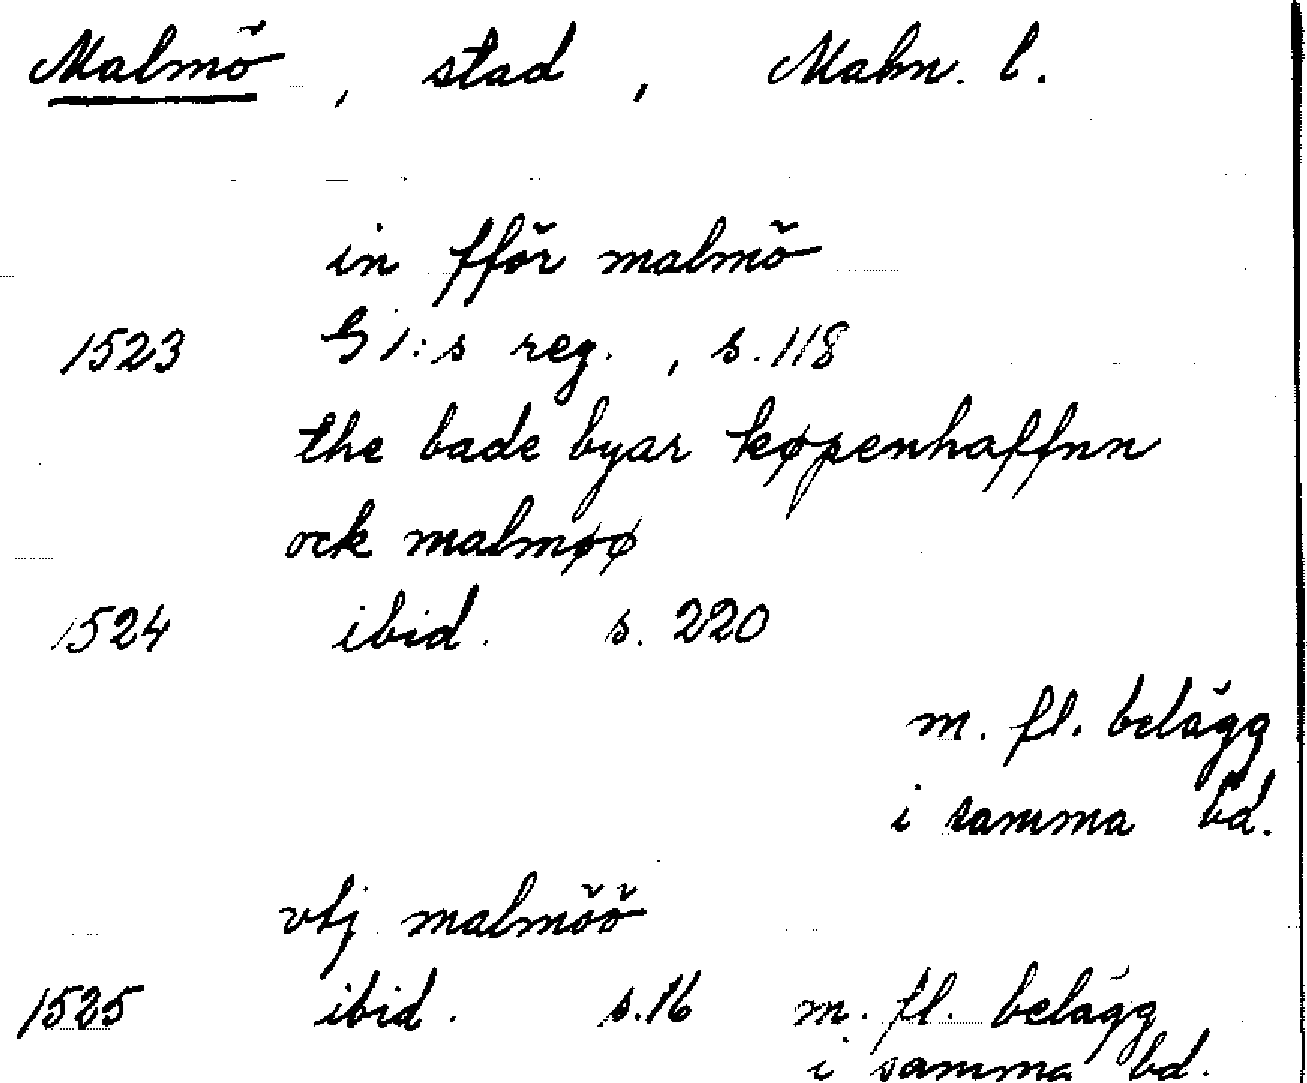 Malmö, stad, Malm. l.
in fför malmö
1523 G I:s reg., s. 118
the bade byar køpenhaffnn
ock malmøø
1524 ibid. s. 220
m. fl. belägg
i samma bd.
vtj malmöö
1525 ibid. s. 16 m. fl. belägg
i samma bd.